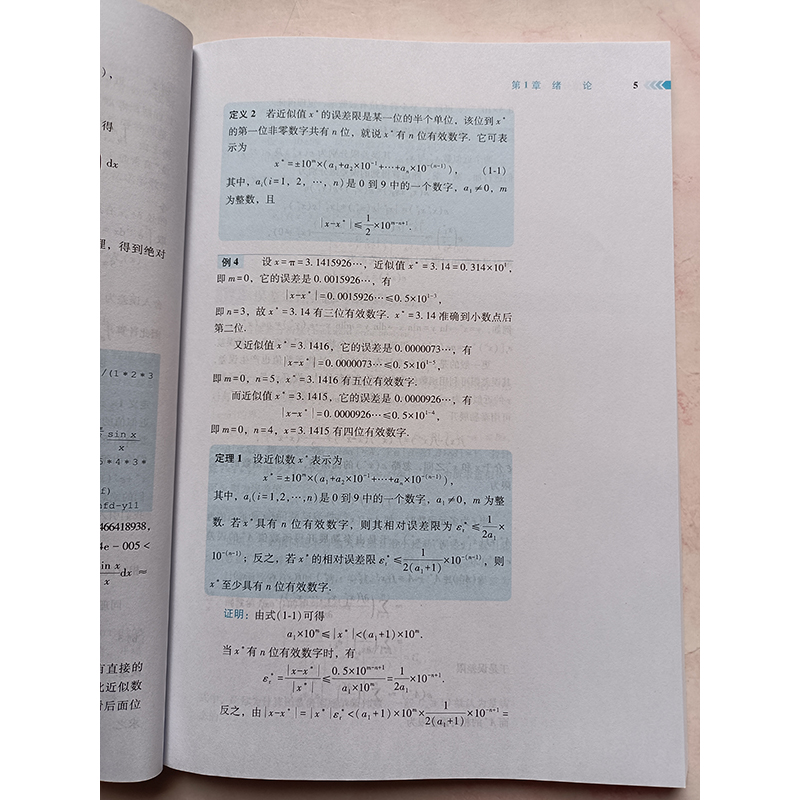 ),
得
dx
理，得到绝对
/(1*2*3
sin x
x
5*4*3*
f)
nfd-y11
466418938,
4e-005<
in x
x
dx≈
有直接的
比近似数
后面位
第1章 绪 论 5
定义2 若近似值x*的误差限是某一位的半个单位，该位到x*
的第一位非零数字共有n位，就说x*有n位有效数字. 它可表
示为
x*=±10^m×(a₁+a₂×10⁻¹+…+aₙ×10^-(n-1)), (1-1)
其中，aᵢ(i=1, 2, …, n)是0到9中的一个数字，a₁≠0，m
为整数，且
|x-x*|≤1/2×10^m-n+1.
例4 设x=π=3.1415926…，近似值x*=3.14=0.314×10¹，
即m=0，它的误差是0.0015926…，有
|x-x*|=0.0015926…≤0.5×10^1-3,
即n=3，故x*=3.14有三位有效数字. x*=3.14准确到小数点后
第二位.
又近似值x*=3.1416，它的误差是0.0000073…，有
|x-x*|=0.0000073…≤0.5×10^1-5,
即m=0，n=5，x*=3.1416有五位有效数字.
而近似值x*=3.1415，它的误差是0.0000926…，有
|x-x*|=0.0000926…≤0.5×10^1-4,
即m=0，n=4，x=3.1415有四位有效数字.
定理1 设近似数x*表示为
x*=±10^m×(a₁+a₂×10⁻¹+…+aₙ×10^-(n-1)),
其中，aᵢ(i=1,2,…,n)是0到9中的一个数字，a₁≠0，m为整
数. 若x*具有n位有效数字，则其相对误差限为εᵣ*≤1/2a₁×
10^-(n-1)；反之，若x*的相对误差限εᵣ*≤1/2(a₁+1)×10^-(n-1)，则
x*至少具有n位有效数字.
证明：由式(1-1)可得
a₁×10^m≤|x*|<(a₁+1)×10^m.
当x*有n位有效数字时，有
εᵣ*=|x-x*|/|x*|≤0.5×10^m-n+1/a₁×10^m=1/2a₁×10^-n+1.
反之，由|x-x*|=|x*|εᵣ*<(a₁+1)×10^m×1/2(a₁+1)×10^-n+1=